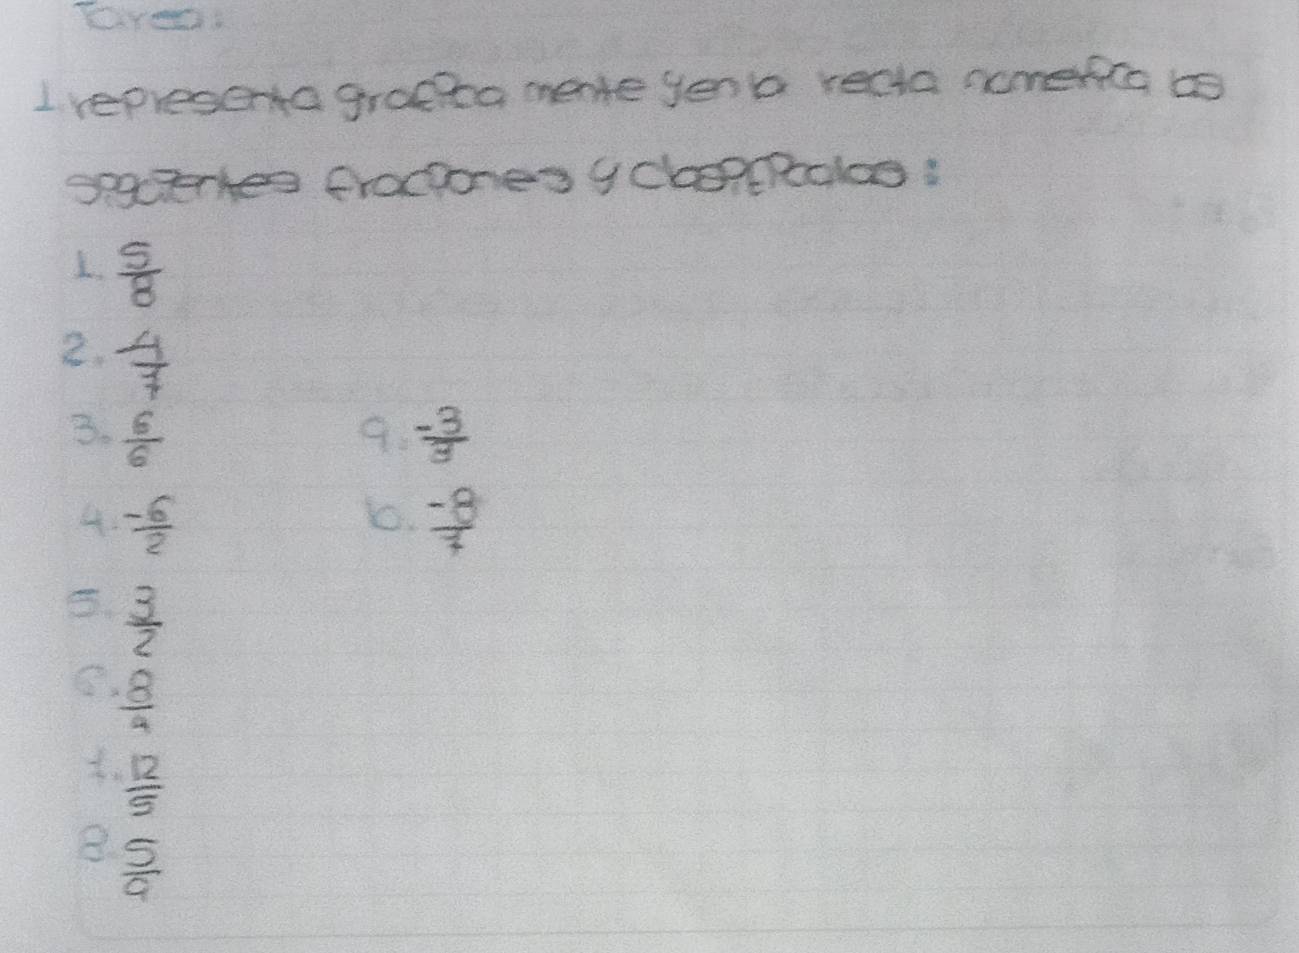 Tarea:
1. representa grafica mente y en la recta numerica las
siguientes fracciones y clasificalas:
1. 5/8
2. 4/7
3. 6/6
4. -6/2
5. 3/2
6. 8/4
7. 12/5
8 5/9
9. -3/4
10. -8/7